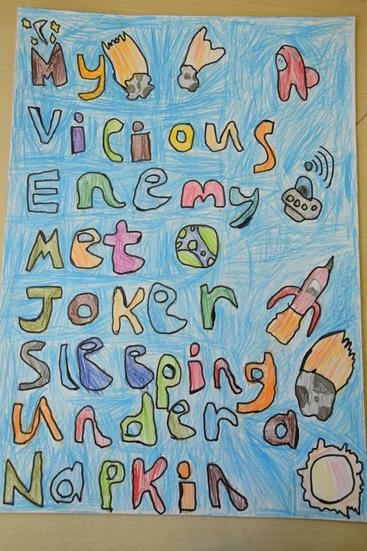 My
Vicious
Enemy
Met
Joker
Sleeping
Under a
Napkin